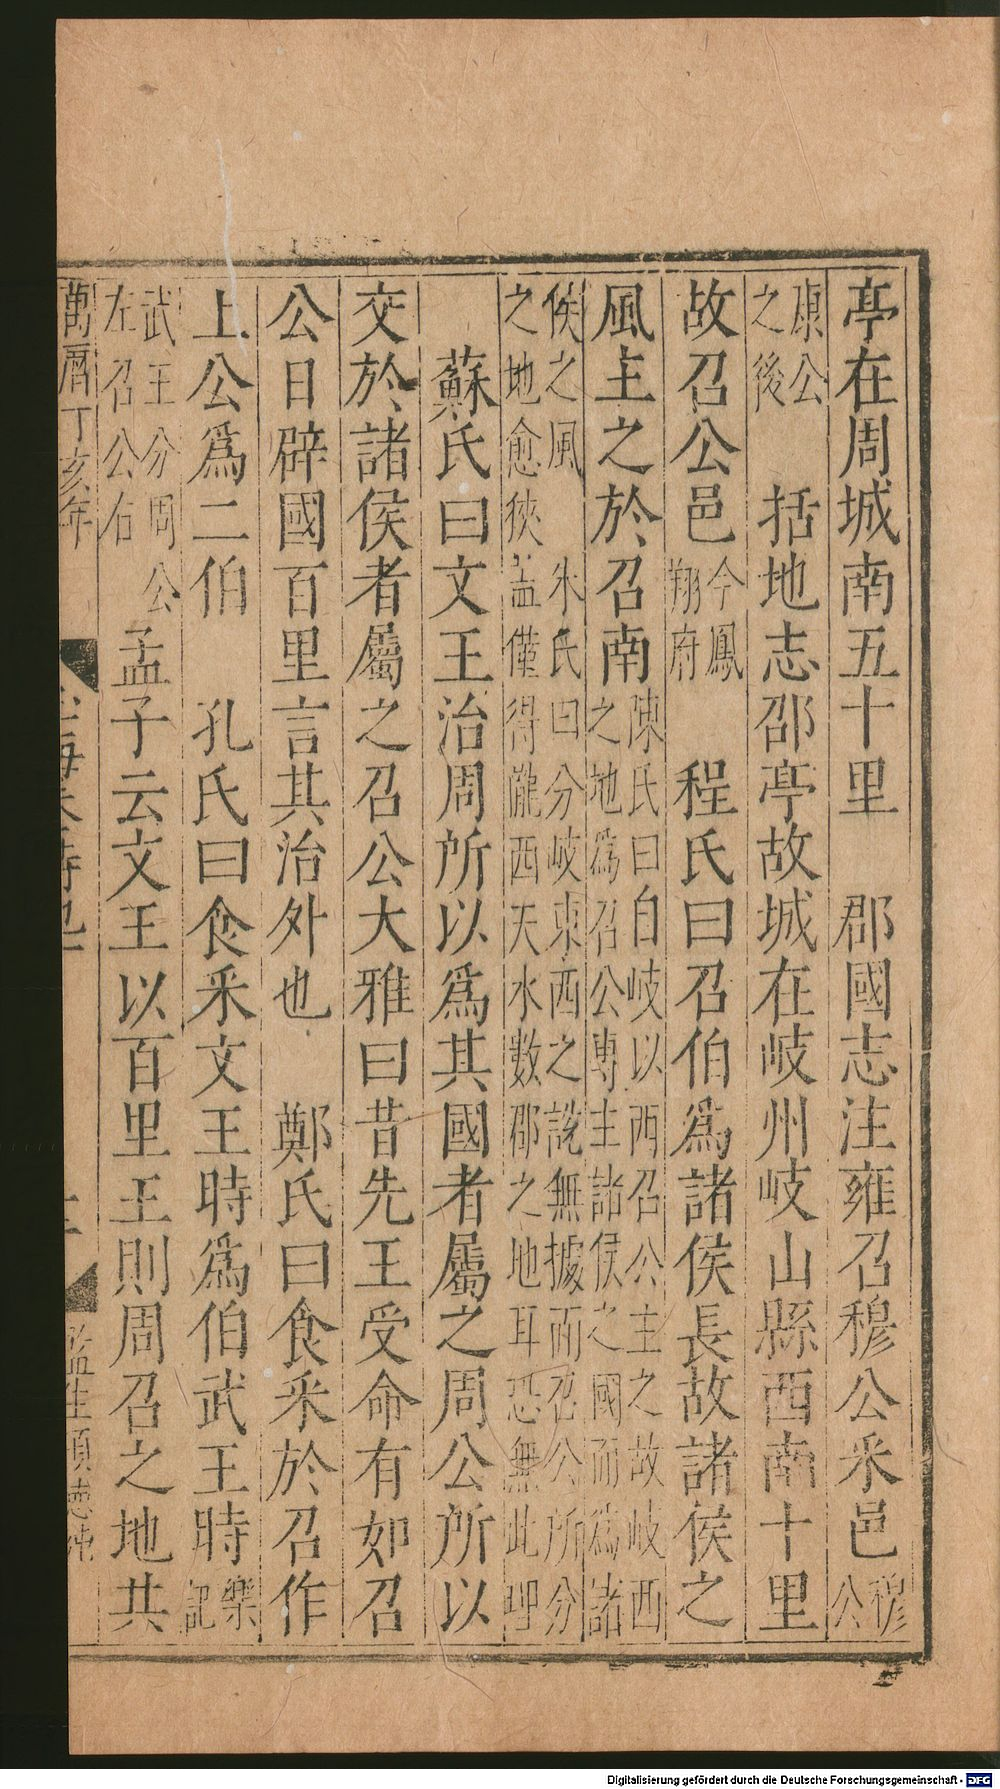 亭在周城南五十里　郡國志注雍召穆公采邑穆公
康公之後　括地志邵亭故城在岐州岐山縣西南十里
故召公邑今鳳翔府　程氏曰召伯爲諸侯長故諸侯之
風主之於召南陳氏曰自岐以西召公主之故岐西
之地爲召公專主諸侯之國而爲諸
侯之風　朱氏曰分岐東西之說無據而召公所分
之地愈狹盖僅得隴西天水數郡之地耳恐無此理
蘇氏曰文王治周所以爲其國者屬之周公所以
交於諸侯者屬之召公大雅曰昔先王受命有如召
公日辟國百里言其治外也　鄭氏曰食采於召作
上公爲二伯　孔氏曰食采文王時爲伯武王時樂記
武王分周公左召公右孟子云文王以百里王則周召之地共
萬曆丁亥年
監生項德
Digitalisierung gefördert durch die Deutsche Forschungsgemeinschaft - DFG